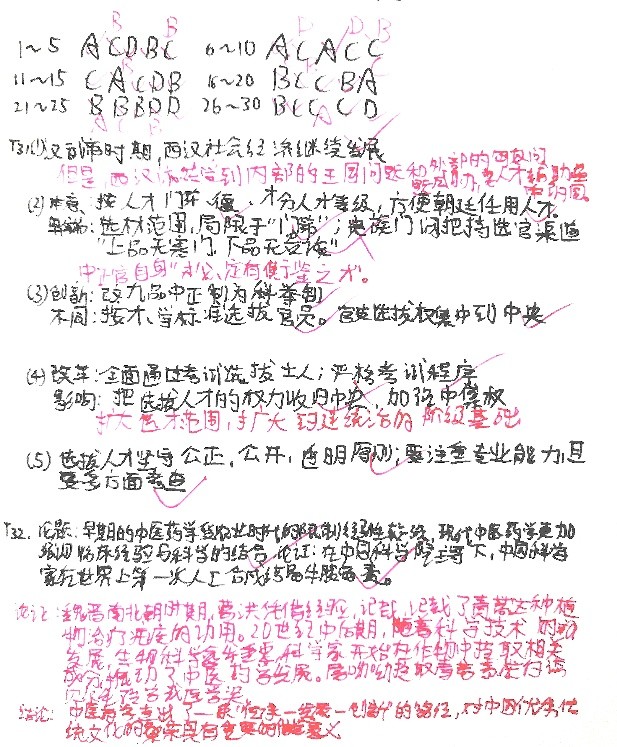 B D D B
1~5 ACDBC 6~10 ACACC
11~15 CACDB 16~20 BCCBA
21~25 BBBDD 26~30 BCCCD
A C B A
T31(1)汉武帝时期,西汉社会经济继续发展
但是西汉依然受到内部的王国问题和外部的匈奴问
(2)本意:按人才门第、德、才分人才等级,方便朝廷任用人才。
弊端:选材范围,局限于"门第";贵族门阀把持选官渠道
"上品无寒门,下品无士族"
中正官自身"未必定有俱鉴之才。
(3)创新:改九品中正制为科举制
不同:按才、学标准选拔官员。官吏选拔权集中到中央
(4)改革:全面通过考试选拔士人;严格考试程序
影响:把选拔人才的权力收归中央,加强中集权
扩大选才范围,扩大封建统治的阶级基础
(5)选拔人才坚守公正,公开,透明原则;要注重专业能力,且
要多方面考查
T32.论题:早期的中医药学受农业时代的限制经验性较强,现代中医药学更加
强调临床经验与科学的结合 论证:在中国科学院主导下,中国科学
家在世界上第一次人工合成结晶牛胰岛素。
论证:魏晋南北朝时期,葛洪凭借经验,记载了青蒿这种植
物治疗疟疾的功用。20世纪中后期,随着科学技术的
发展,生物科学家开始在作物中提取相关
成分,推动了中医药学发展。屠呦呦提取青蒿素
结论:中医药学走出了一条 一发展一创新的路径,对中国优秀传
统文化的 具有重要的意义